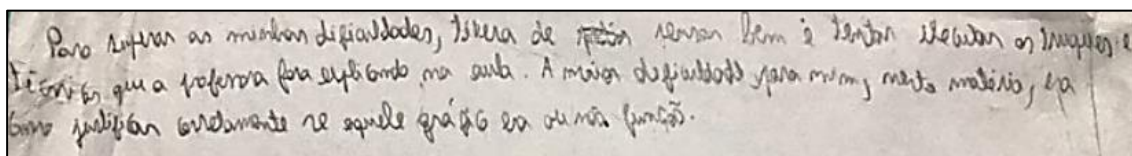 Para superar as minhas dificuldades, tivera de pensar bem e tentar executar os truques e
técnicas que a professora fora explicando na aula. A maior dificuldade, para mim, nesta matéria, era
como justificar corretamente se aquele gráfico era ou não função.